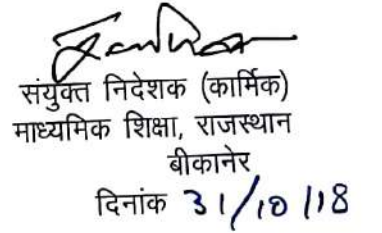 संयुक्त निदेशक (कार्मिक)
माध्यमिक शिक्षा, राजस्थान
बीकानेर
दिनांक 31/10/18